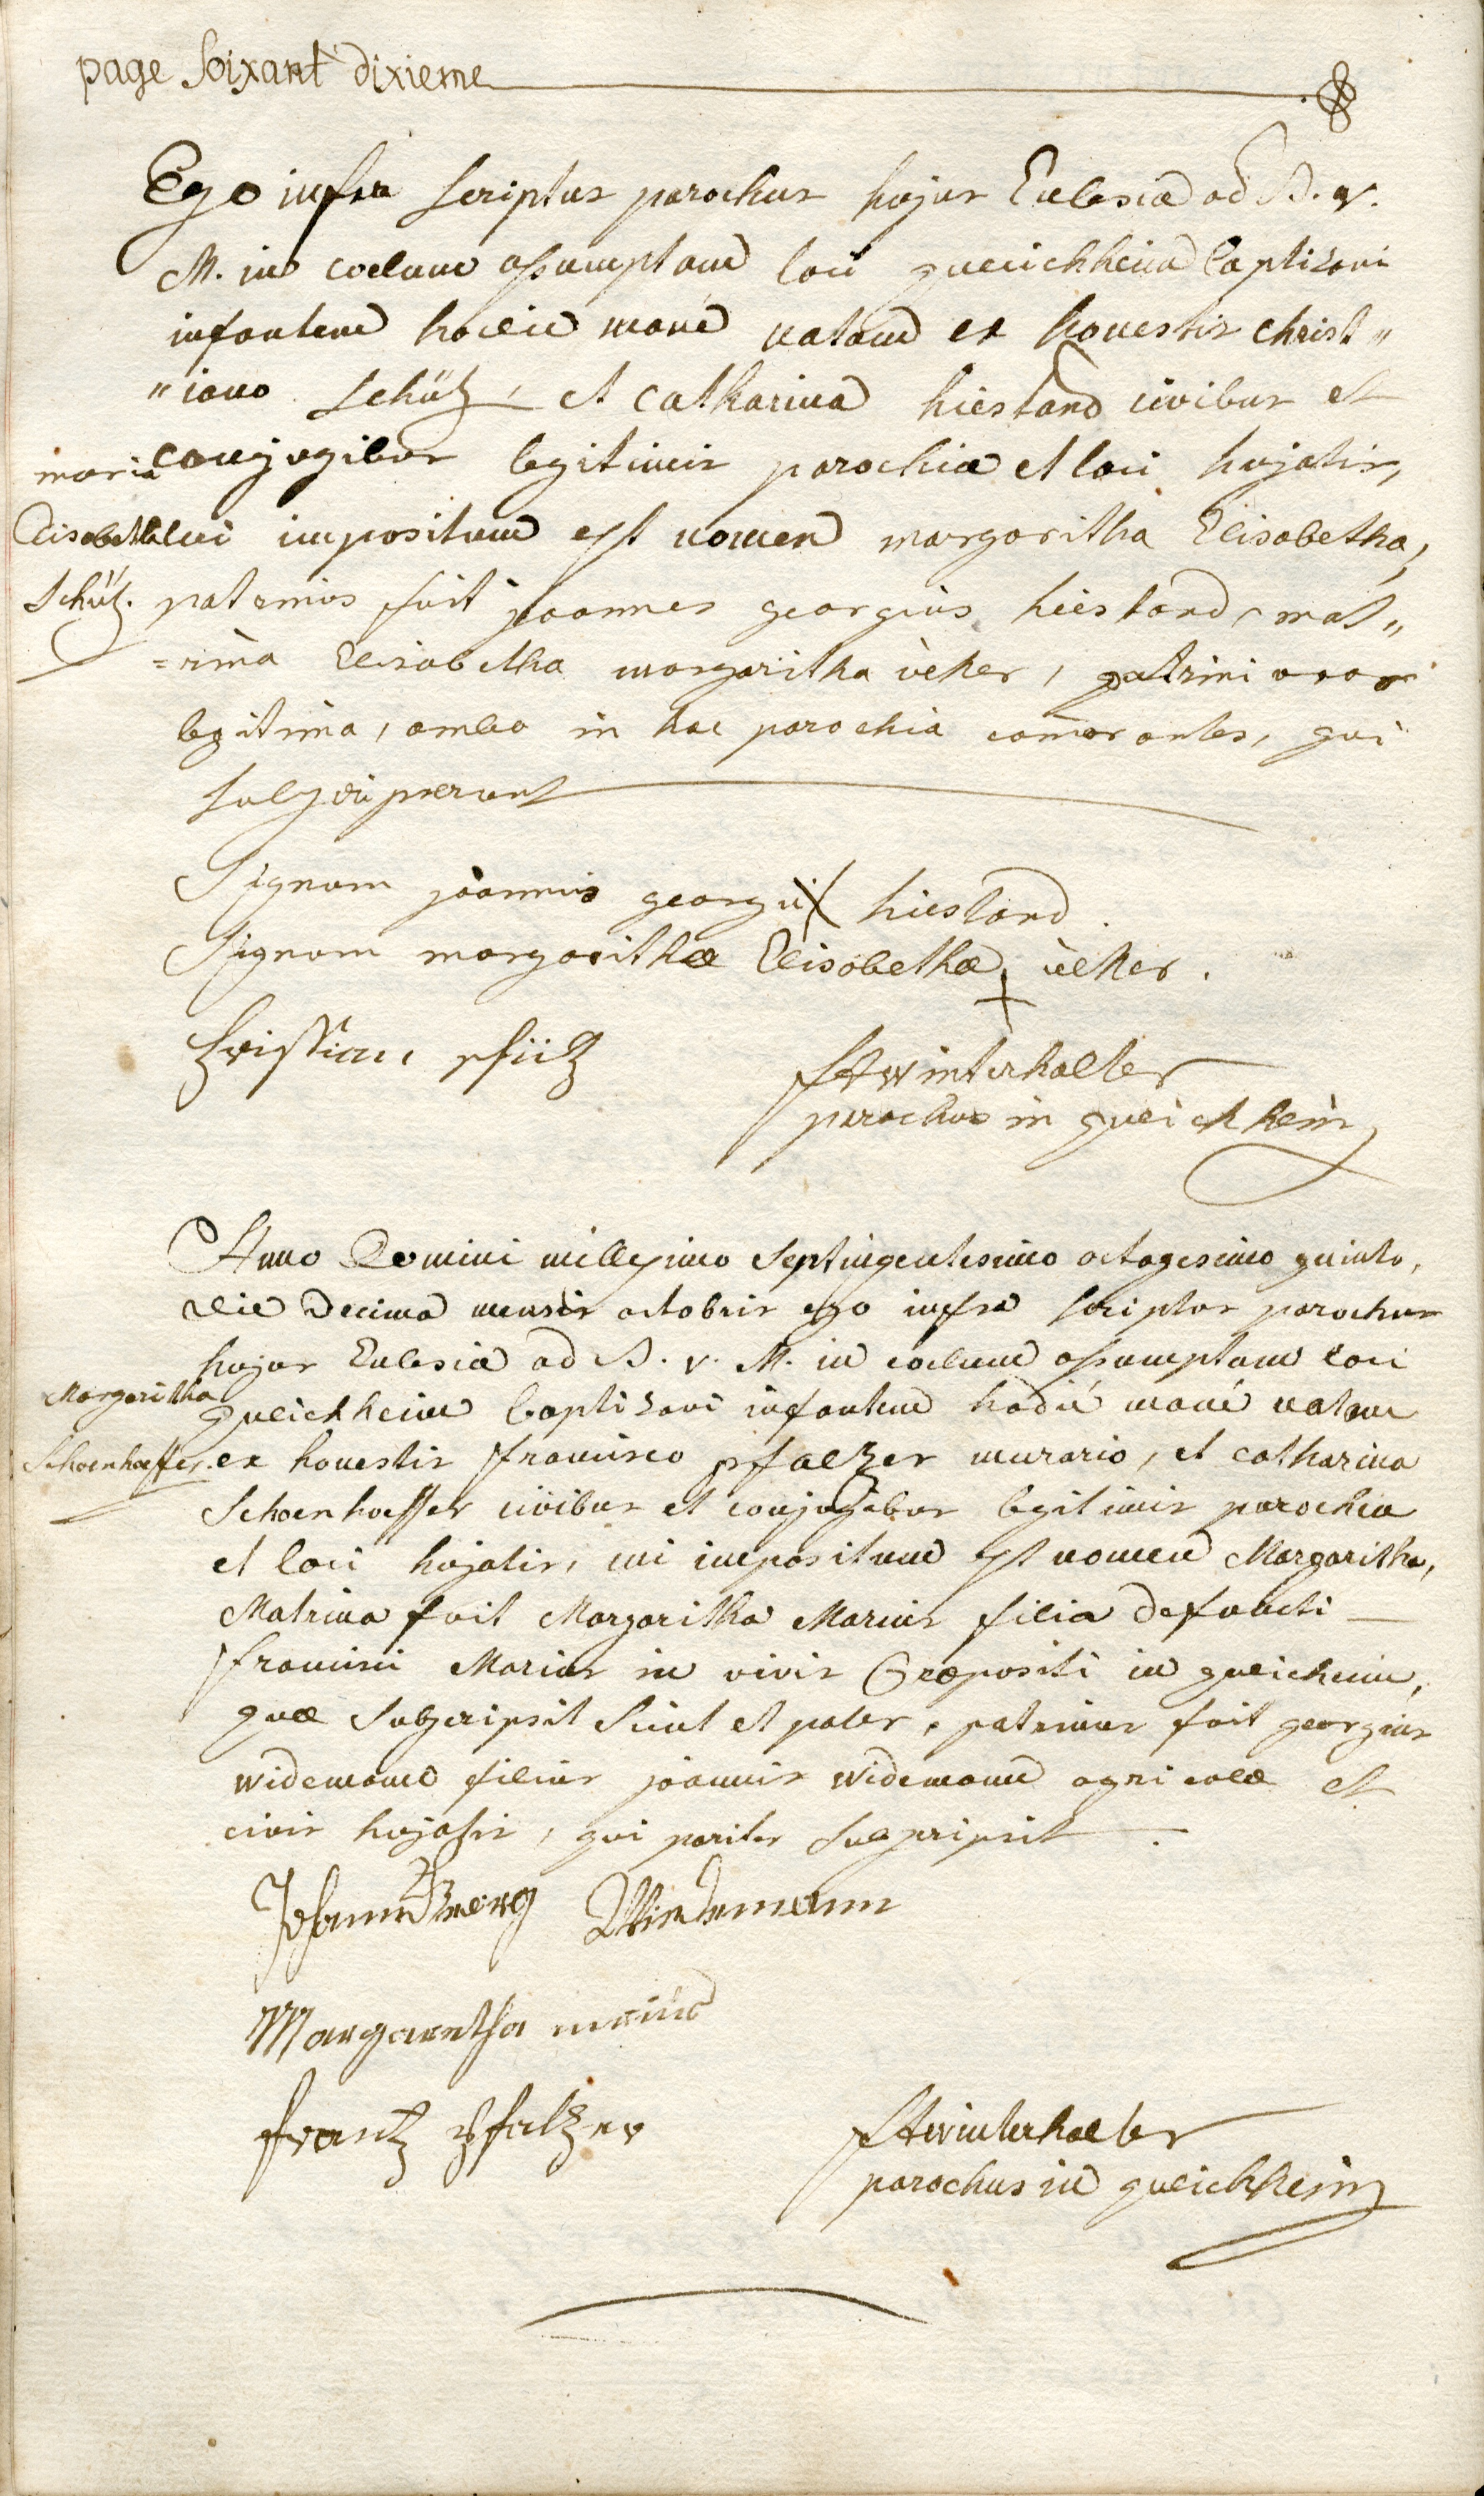 page Soixant dixieme
Ego infra scriptus parochus hujus Eclesiæ ad B. v.
M. in coelum assumptam loci gueichheim baptizavi
infantem hodie mané natam ex honestis christ„
„iano Schütz, et Catharina hiestand civibus et
conjugibus legitimis parochiæ et loci hujatis,
maria
Elisabetha
Schütz.
cui impositum est nomen margaritha Elisabetha,
patrinus fuit joannes georgius hiestand, mat„
=rina Elisabetha margaritha ücker, patrini uxor
legitima, ambo in hac parochia comorantes, qui
subscripserunt
Signum joannis georgii X hiestand.
Signum margarithæ Elisabethæ + ücker.
schütz
FA winterhalter
parochus in gueichheim
Anno Domini millesimo Septingentesimo octogesimo quinto,
die Decima mensis octobris ego infra scriptus parochus
hujus Eclesiæ ad B. v. M. in coelum assumptam loci
Margaritha
Schoenhoffer.
gueichheim baptizavi infantem hodié mané natam
ex honestis francisco pfalzer murario, et catharina
Schoenhoffer civibus et conjugibus legitimis parochiæ
et loci hujatis, cui impositum est nomen Margaritha,
Matrina fuit Margaritha Marius filia defuncti
francisci Marius in vivis Præpositi in gueichheim,
quæ subscripsit sicut et pater, patrinus fuit georgius
widemann filius joannis widemann agricolæ et
civis hujatis, qui pariter subscripsit.
Johann Georg Widemann
Margaretha marius
frantz Pfaltzer
FA winterhalter
parochus in gueichheim